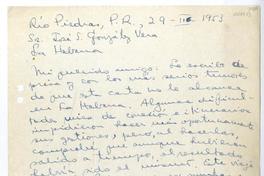 Río Piedras, P.R., 29-III-1953
Sr. José S. González Vera
La Habana
Mi querido amigo: Le escribo de
prisa y con los más serios temores
de que esta carta no le alcance
en La Habana. Algunas dificul-
tades mías de conexión e itinerarios
impidieron hacer más oportunamente
sus gestiones, pero, al hacerlas,
comprobé que aunque hubieran
salido a tiempo, el resultado
habría sido el mismo. Este viaje